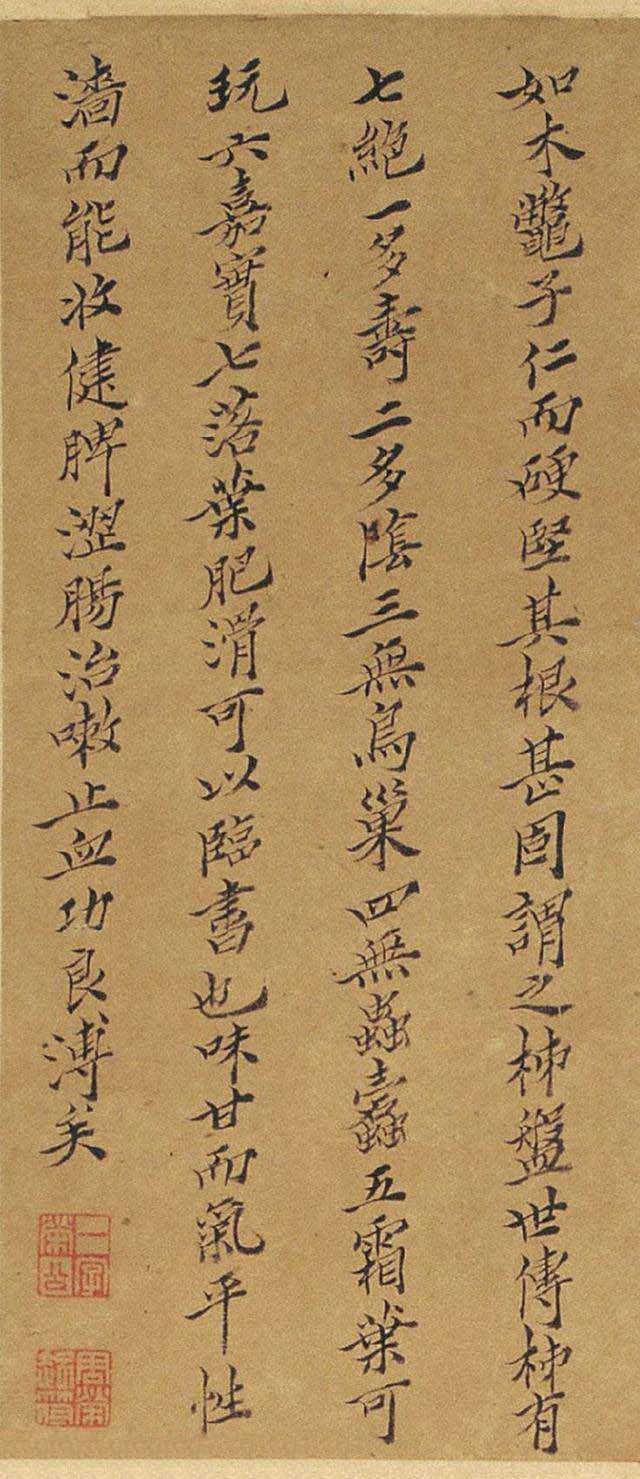 如木鼈子仁而硬堅其根甚固謂之柹盤世傳柹有
七絕一多壽二多陰三無鳥巢四無蟲蠹五霜葉可
玩六嘉實七落葉肥滑可以臨書也味甘而氣平性
濇而能收健脾澀腸治嗽止血功良溥矣